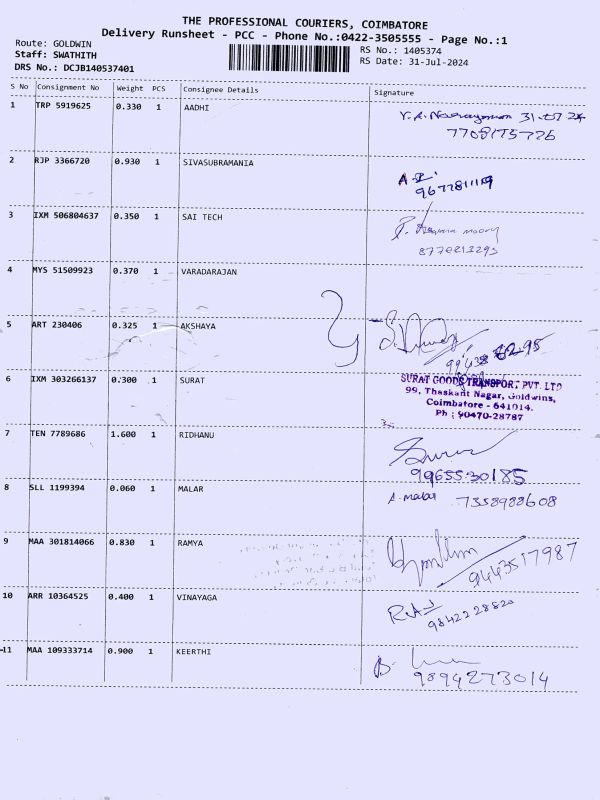 THE PROFESSIONAL COURIERS, COIMBATORE
Delivery Runsheet - PCC - Phone No.:0422-3505555 - Page No.:1
Route: GOLDWIN
Staff: SWATHITH
DRS No.: DCJB140537401
RS No.: 1405374
RS Date: 31-Jul-2024
S No Consignment No Weight PCS Consignee Details Signature
1 TRP 5919625 0.330 1 AADHI
7708175726
2 RJP 3366720 0.930 1 SIVASUBRAMANIA
3 IXM 506804637 0.350 1 SAI TECH
8770213295
4 MYS 51509923 0.370 1 VARADARAJAN
5 ART 230406 0.325 1 AKSHAYA
6 IXM 303266137 0.300 1 SURAT
SURAT GOODS TRANSPORT PVT. LTD
99, Thaskant Nagar, Goldwins,
Coimbatore - 641014.
Ph : 90470-28787
7 TEN 7789686 1.600 1 RIDHANU
99655 30185
8 SLL 1199394 0.060 1 MALAR
A. malar 7358988608
9 MAA 301814066 0.830 1 RAMYA
9443517987
10 ARR 10364525 0.400 1 VINAYAGA
9842228820
11 MAA 109333714 0.900 1 KEERTHI
9894273014